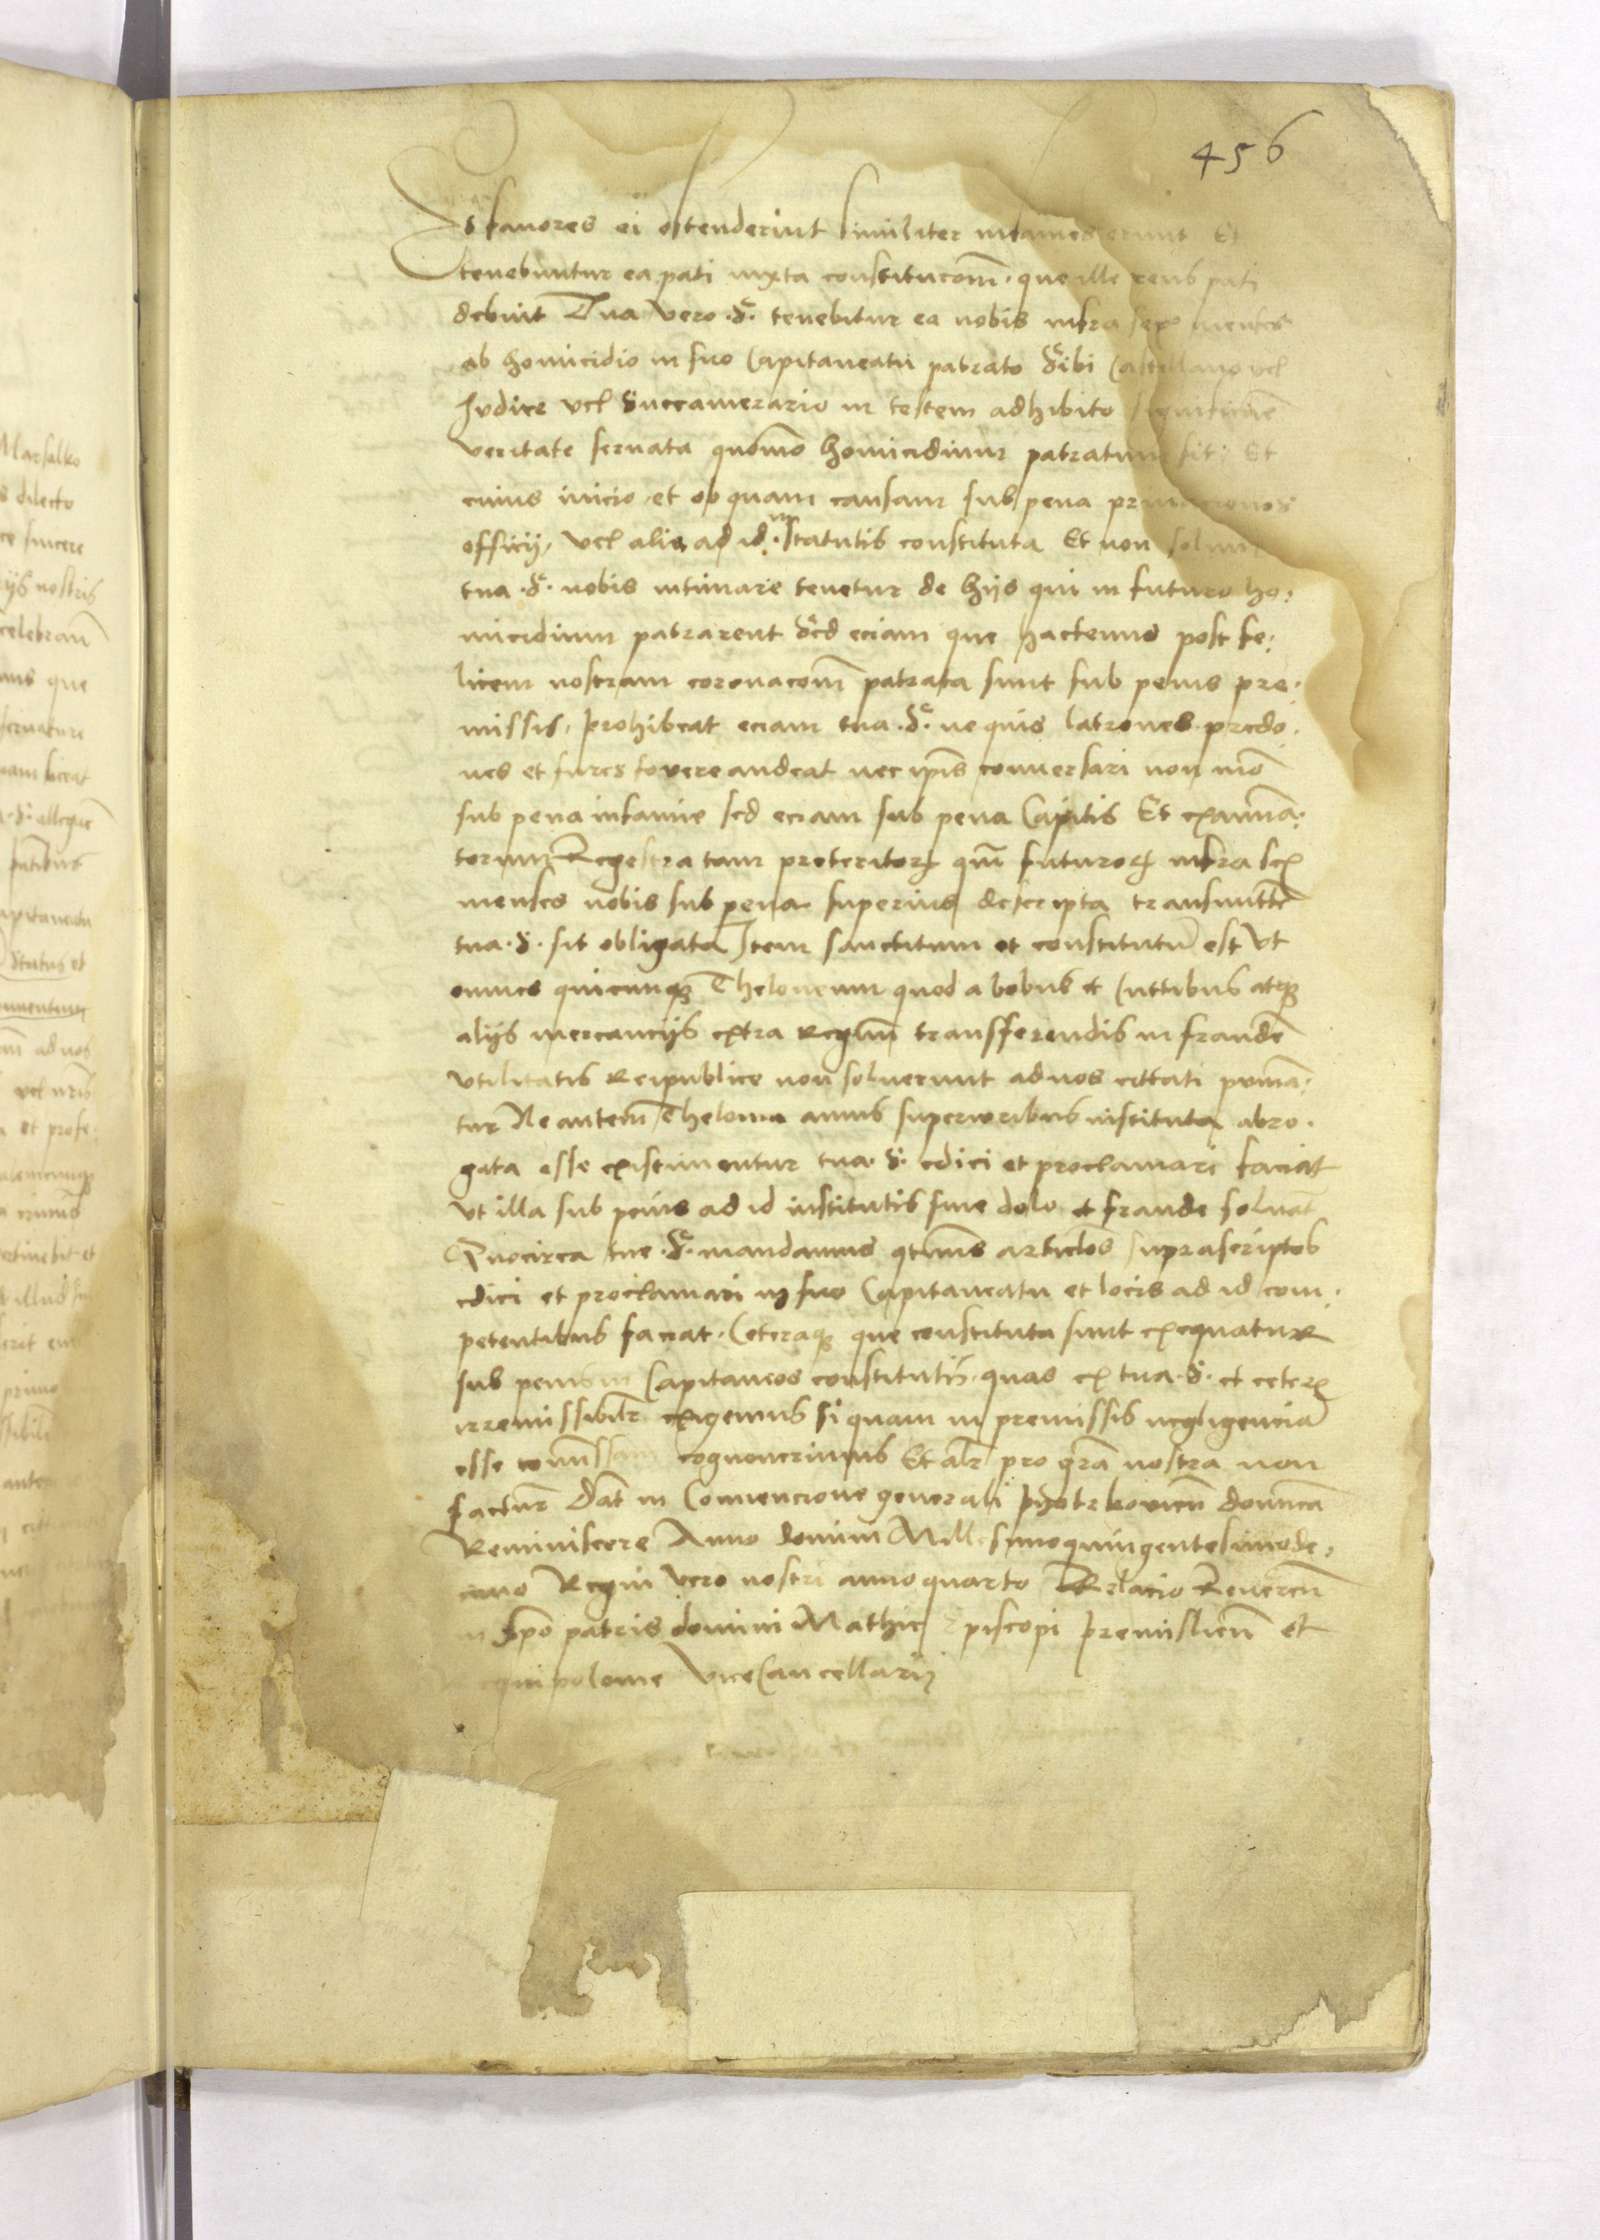 456
Et favores ei ostenderint similiter infames erunt Et
tenebuntur ea pati iuxta constitucom̄ que ille reus pati
debuit Tua vero S. tenebitur ea nobis infra sex menses
ab homicidio in suo Capitaneatu patrato Sibi Castellano vel
Judice vel Succamerario in testem adhibito significare
veritate servata quom̄o homicidium patratum sit Et
cuius inicio et ob quam causam sub pena privacionis
officij, vel alis ad id in statutis constituta Et non solum
tua S. nobis intimare tenetur de hijs qui in futuro ho:
micidium patrarent Sed eciam que hactenus post fe:
licem nostram coronacom̄ patrata sunt sub penis pre:
missis, prohibeat eciam tua S. ne quis latrones predo:
nes et fures fovere audeat nec ip̄is conversari non mō
sub pena infamie sed eciam sub pena Capitis Et examina:
torum Regestra tam preteritorꝝ qm̄ futurorꝝ infra sex
menses nobis sub pena superius descripta transmittē
tua S. sit obligata Item sanctitum et constitutū est vt
omnes quicunqꝫ Theloneum quod a bobus et Cuttibus atqꝫ
alijs mercancijs extra Regnū transferendis in fraudē
vtilitatis Reipublice non solverunt ad nos cittati puniā:
tur Ne autem Thelonia annis superioribus instituta abro:
gata esse existimentur tua S. edici et proclamari faciat
vt illa sub penis ad id institutis sine dolo et fraude solvāt
Quocirca tue S. mandamus qtin̄us articlos suprascriptos
edici et proclamari in suo Capitaneatu et locis ad id com:
petentibus faciat. Ceteraqꝫ que constituta sunt exequatur
sub penis in Capitaneos constitutis quas ex tua S. et ceter
irremissibilr exigemus si quam in premissis negligenciā
esse comissam cognoverimus Et alr pro grā nostra non
factur Dat in Convencione generali Pyotrkovien̄ dominica
Reminiscere Anno domini Millesimoquingentesimode:
cimo Regni vero nostri anno quarto Relacio Reveren̄
in Xpo patris domini Mathie Episcopi Premislien̄ et
Regni polonie ViceCancellarij